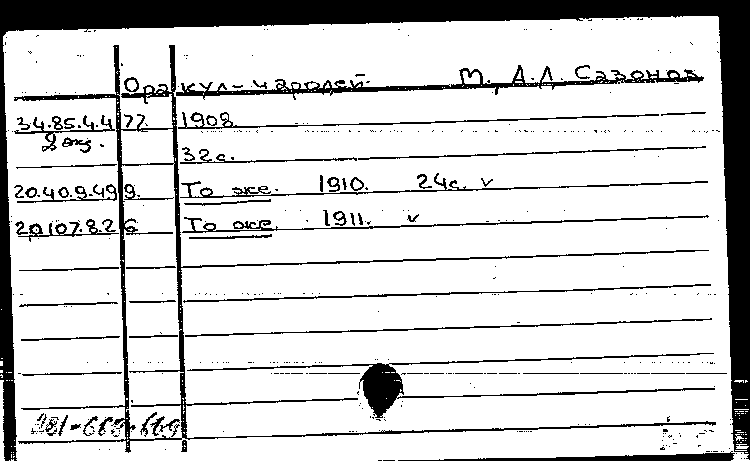 Оракул-чародей. М., А.Д. Сазонов
34.85.4.477. 1908.
2 экз. 32с.
20.40.9.499. То же. 1910. 24с. v
20.107.8.26. То же. 1911. v